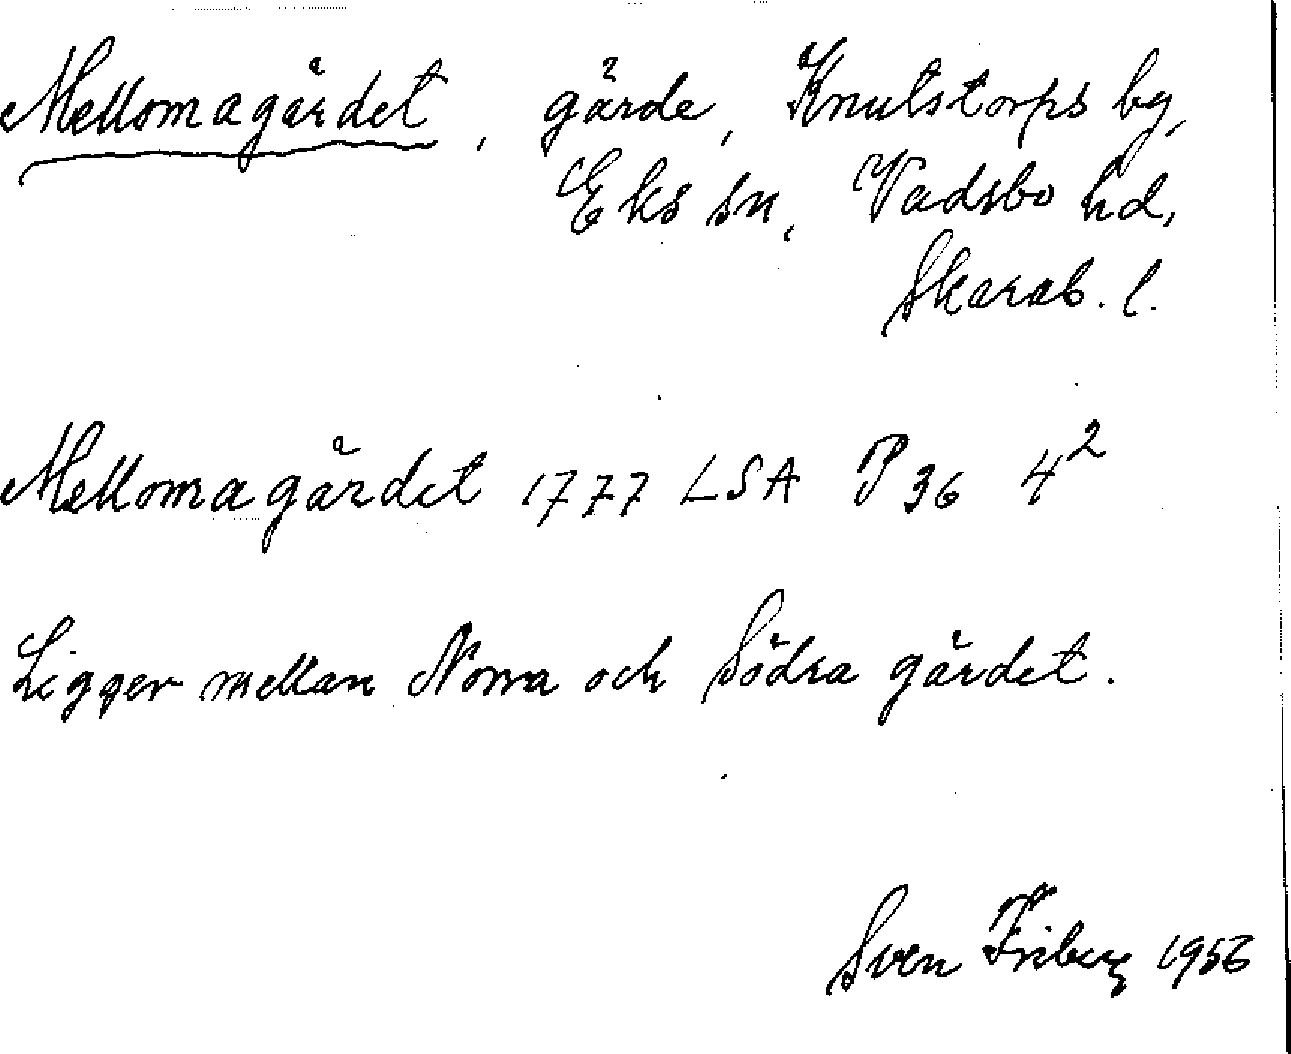 Mellomagärdet, gärde, Knutstorps by,
Eks sn, Vadsbo hd,
Skarab. l.
Mellomagärdet 1777 LSA P 36 4²
Ligger mellan Norra och Södra gärdet.
Sven Friberg 1956